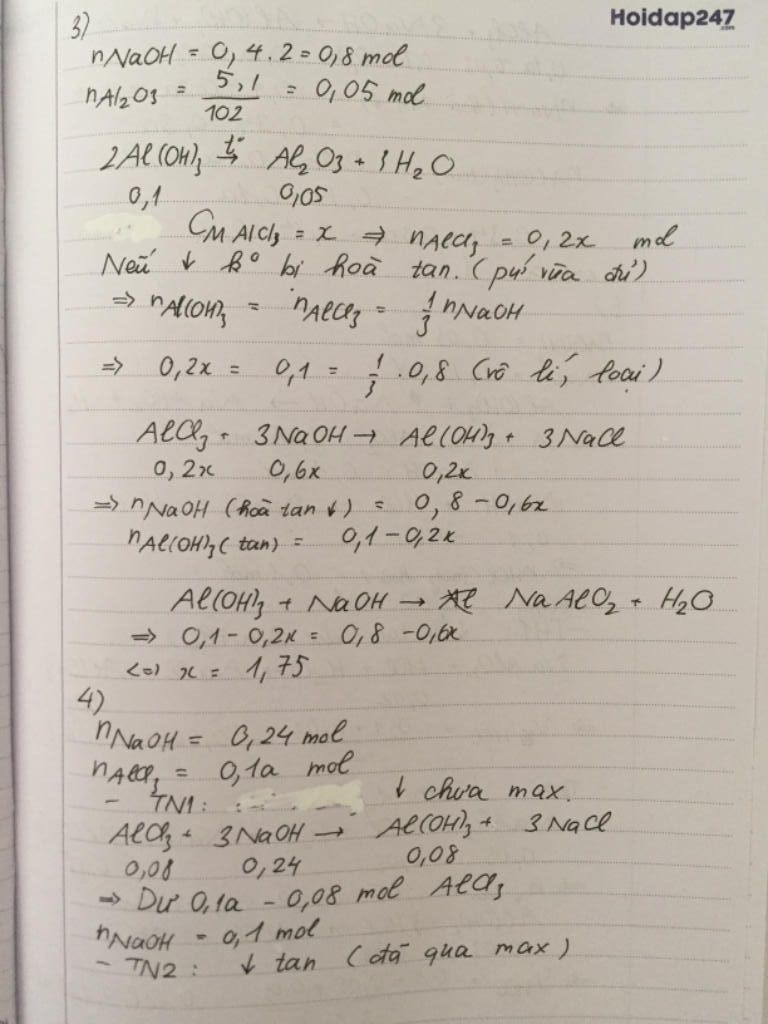 Hoidap247
.com
3)
nNaOH = 0,4.2 = 0,8 mol
nAl2O3 = 5,1/102 = 0,05 mol
2Al(OH)3 t°→ Al2O3 + 3H2O
0,1 0,05
CM AlCl3 = x ⇒ nAlCl3 = 0,2x mol
Nếu ↓ ko bị hoà tan. (pứ vừa đủ)
⇒ nAl(OH)3 = nAlCl3 = 1/3 nNaOH
⇒ 0,2x = 0,1 = 1/3 . 0,8 (vô lí, loại)
AlCl3 + 3NaOH → Al(OH)3 + 3NaCl
0,2x 0,6x 0,2x
⇒ nNaOH (hoà tan ↓) = 0,8 - 0,6x
nAl(OH)3 (tan) = 0,1 - 0,2x
Al(OH)3 + NaOH → NaAlO2 + H2O
⇒ 0,1 - 0,2x = 0,8 - 0,6x
<=> x = 1,75
4)
nNaOH = 0,24 mol
nAlCl3 = 0,1a mol
- TN1: ↓ chưa max.
AlCl3 + 3NaOH → Al(OH)3 + 3NaCl
0,08 0,24 0,08
⇒ Dư 0,1a - 0,08 mol AlCl3
nNaOH = 0,1 mol
- TN2: ↓ tan (đã qua max)